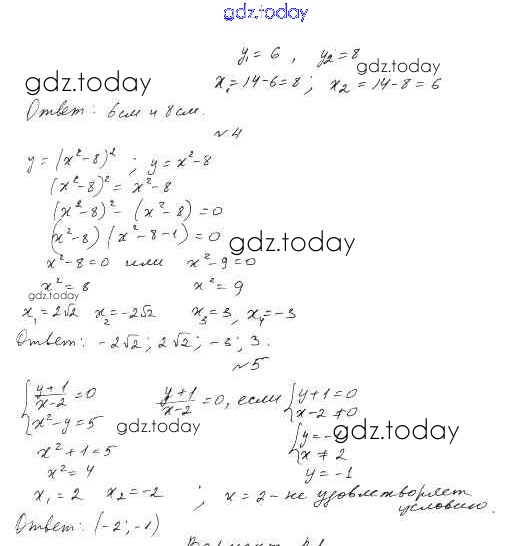 gdz.today
y₁ = 6 , y₂ = 8
gdz.today
gdz.today
x₁ = 14-6 = 8 ; x₂ = 14-8 = 6
Ответ: 6см и 8см.
№4
y = (x²-8)² ; y = x²-8
(x²-8)² = x²-8
(x²-8)² - (x²-8) = 0
(x²-8) (x²-8-1) = 0
gdz.today
x²-8=0 или x²-9=0
x² = 8 x² = 9
gdz.today
x₁ = 2√2 x₂ = -2√2 x₃ = 3, x₄ = -3
Ответ: -2√2; 2√2; -3; 3.
№5
{ (y+1)/(x-2) = 0 (y+1)/(x-2) = 0, если { y+1=0
x²-y=5 x-2≠0
gdz.today
gdz.today
x²+1=5 { y=-1
x² = 4 x ≠ 2
y = -1
x₁ = 2 x₂ = -2 ; x = 2 - не удовлетворяет
условию.
Ответ: (-2; -1)